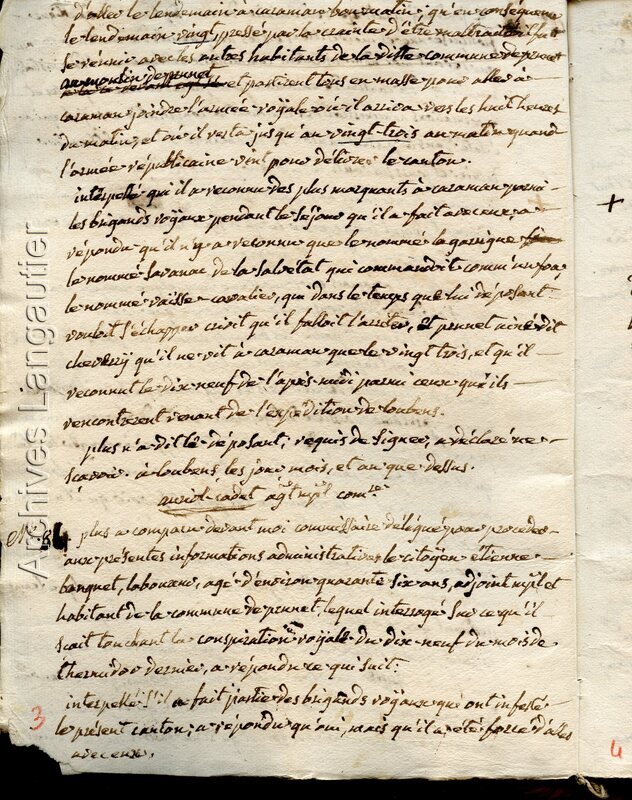 d'aller le lendemain à caraman bon matin; qu'en conséquence
le lendemain vingt pressé par la crainte d'être maltraité il fut
se réunir avec les autres habitants de la ditte commune de prunet
au moulin de prunet
et partirent tous en masse pour aller à
caraman joindre l'armée royale où il arriva vers les huit heures
du matin, et où il resta jusqu'au vingt-trois au matin quand
l'armée républicaine vint pour délivrer le canton.
interpellé qui il a reconnu des plus marquants à caraman parmi
les brigands royaux pendant le séjour qu'il a fait avec eux, a
répondu qu'il n'y a reconnu que le nommé la garrigue
le nommé Savanac de la Salvetat qui commandoit comm'un fou,
le nommé vaisse cavalier, qui dans le temps que lui déposant
vouloit s'échapper crioit qu'il falloit l'arrêter, et prunet dit
cheverry qu'il ne vit à caraman que le vingt trois, et qu'il
reconnut le dix neuf de l'après midi parmi ceux qu'ils
rencontrerent venant de l'expédition de loubens.
plus n'a dit le déposant; requis de signer, a déclaré ne
scavoir. à loubens les jour mois, et an que dessus.
auriol cadet agt mpl comre
N. 84 plus a comparu devant moi commissaire délégué pour procéder
aux présentes informations administratives le citoyen étienne
banquet, laboureur, agé d'environ quarante six ans, adjoint mpl et
habitant de la commune de prunet, lequel interrogé sur ce qu'il
scait touchant la conspiration royale du dix neuf du mois de
thermidor dernier, a répondu ce qui suit:
interpellé s'il a fait partie des brigands royaux qui ont infesté
le présent canton; a répondu qu'oui, mais qu'il a été forcé d'aller
avec eux.
3
+
4
Archives Liangautier